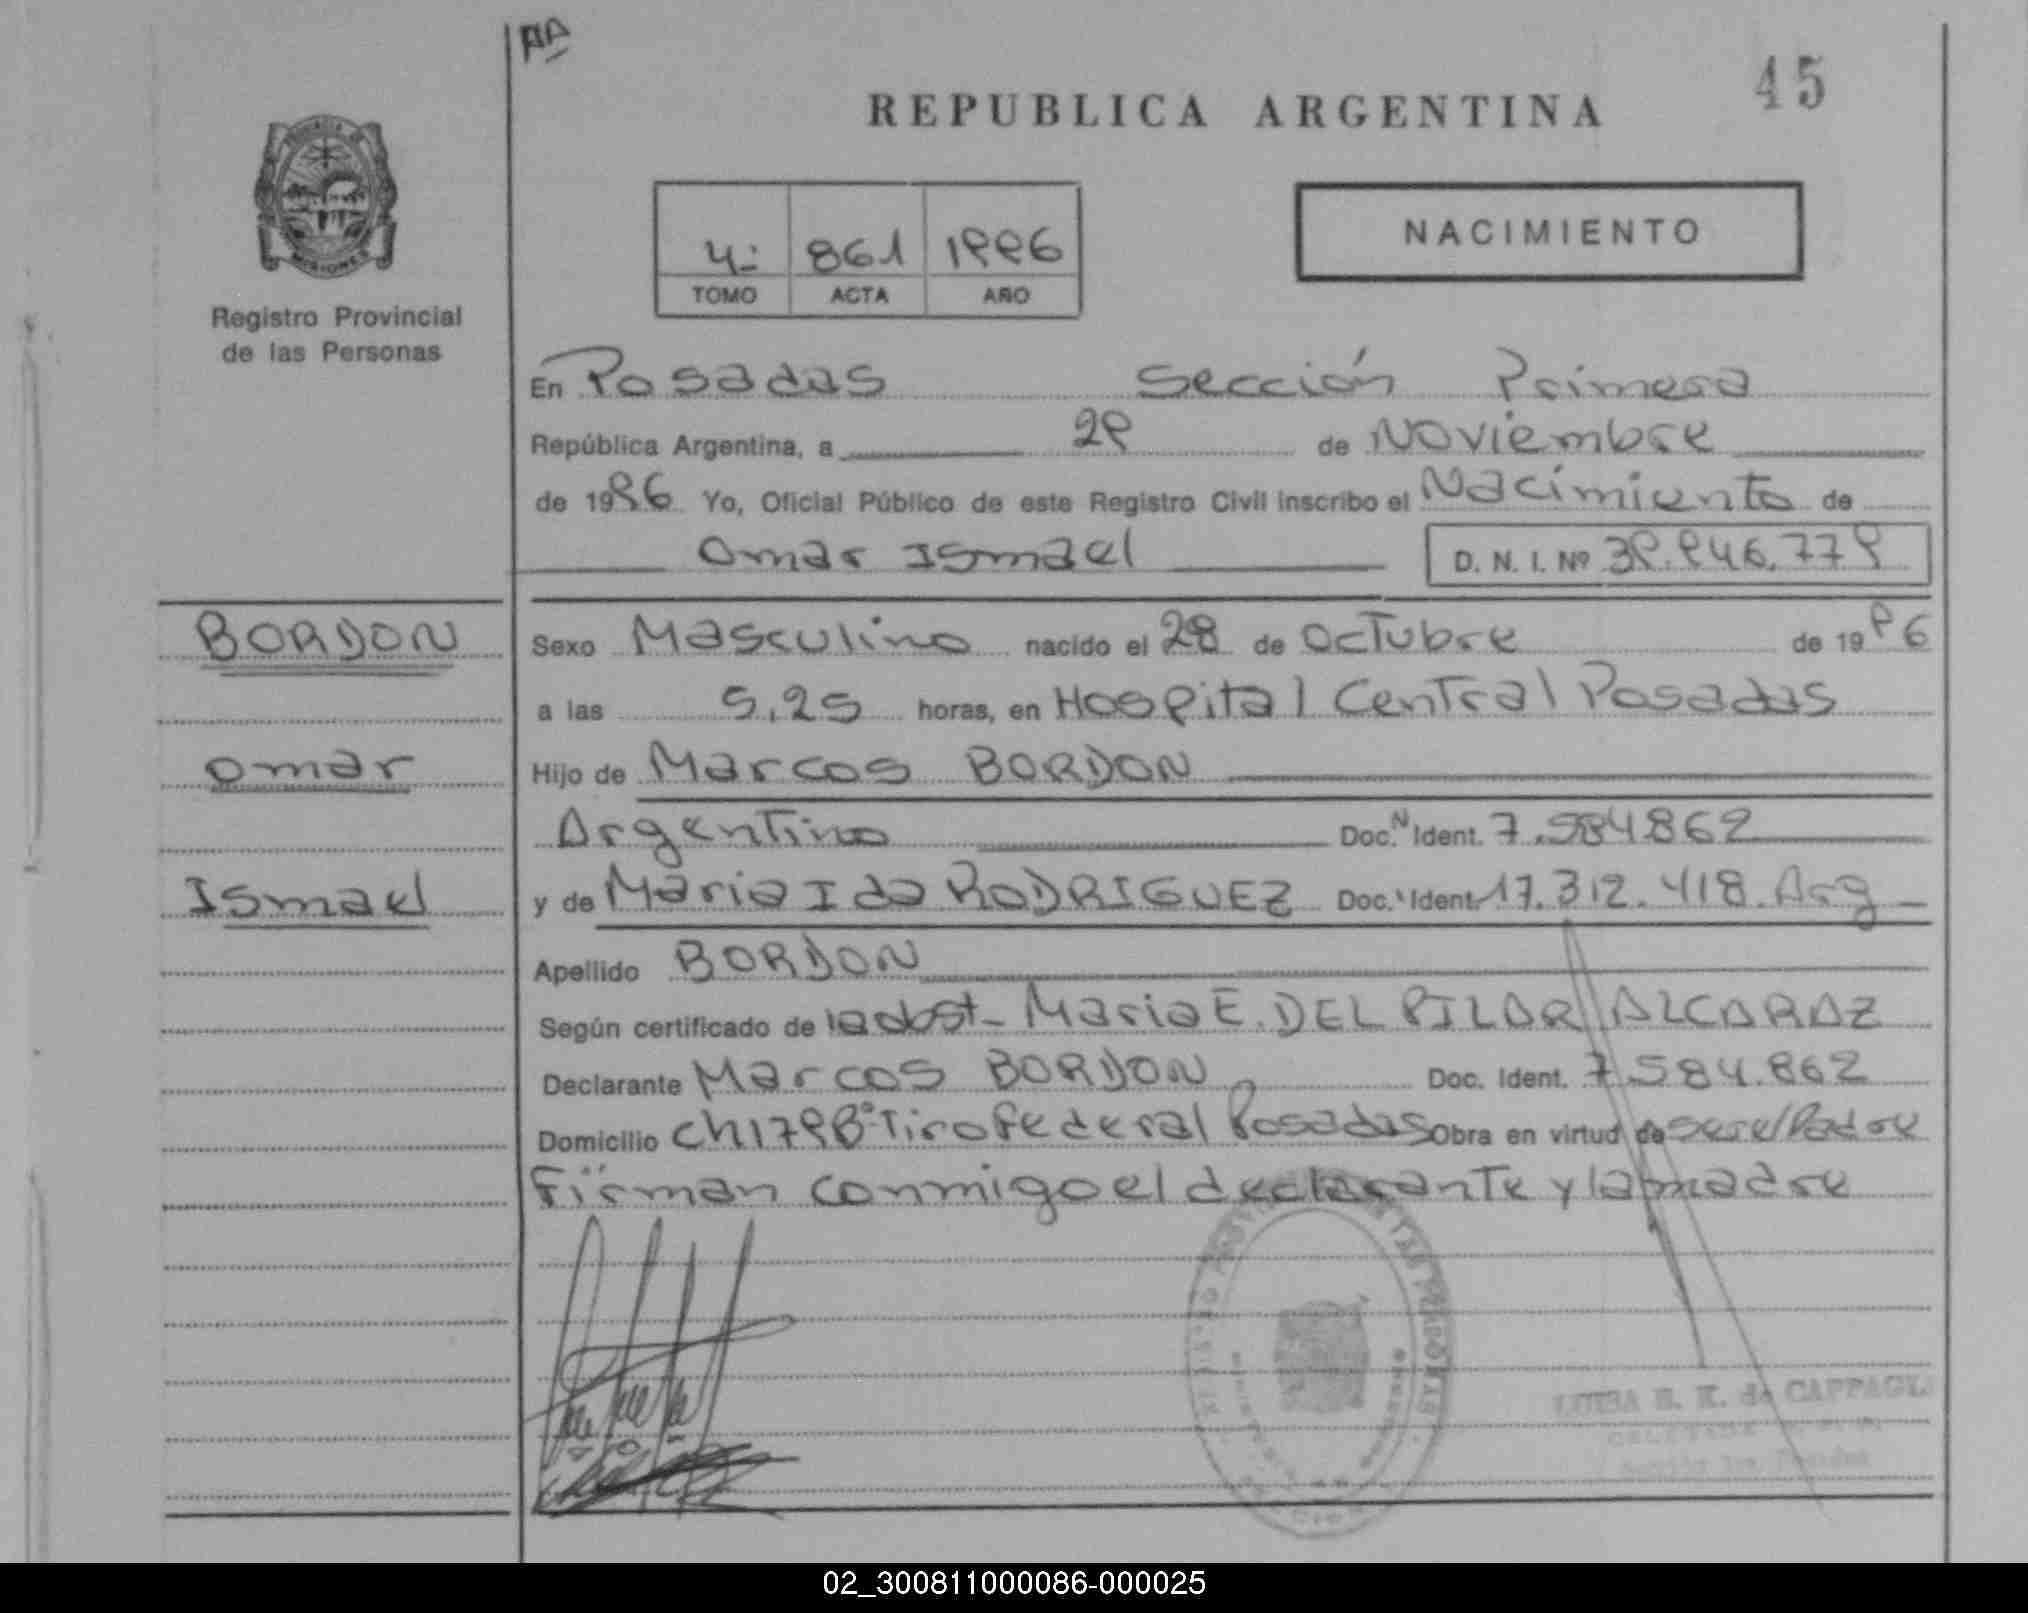 AA
45
REPUBLICA ARGENTINA
4-
861
1996
TOMO
ACTA
AÑO
NACIMIENTO
MISIONES
Registro Provincial
de las Personas
En Posadas Sección Primera
República Argentina, a 29 de Noviembre
de 1996 Yo, Oficial Público de este Registro Civil inscribo el Nacimiento de
Omar Ismael D. N. I. Nº 39.946.779
BORDON
Sexo Masculino nacido el 28 de Octubre de 1996
a las 5,25 horas, en Hospital Central Posadas
Omar
Hijo de Marcos BORDON
Argentino Doc. N Ident. 7.584.862
Ismael
y de Maria Ida RODRIGUEZ Doc. Ident. 17.312.418. Arg
Apellido BORDON
Según certificado de la obst- Maria E. DEL PILAR ALCARAZ
Declarante Marcos BORDON Doc. Ident. 7.584.862
Domicilio Ch179Bº Tiro Federal Posadas Obra en virtud de ser el Padre
Firman conmigo el declarante y la madre
LUISA E. K. de
02_300811000086-000025